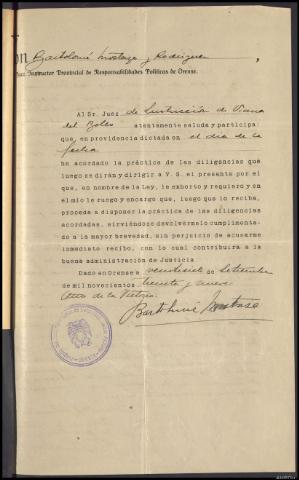 on Bartolomé Mostaza y Rodríguez,
Juez Instructor Provincial de Responsabilidades Políticas de Orense.
Al Sr. Juez de Instrucción de Viana
del Bolo atentamente saluda y participa:
que, en providencia dictada en el día de la
fecha
ha acordado la práctica de las diligencias que
luego se dirán y dirigir a V. S. el presente por el
que, en nombre de la Ley, le exhorto y requiero y en
el mío le ruego y encargo que, luego que lo reciba,
proceda a disponer la práctica de las diligencias
acordadas, sirviéndose devolvérmelo cumplimenta-
do a la mayor brevedad, sin perjuicio de acusarme
inmediato recibo, con lo cual contribuirá a la
buena administración de Justicia
Dado en Orense a veintiseis de Setiembre
de mil novecientos treinta y nueve
Año de la Victoria.
Bartolomé Mostaza